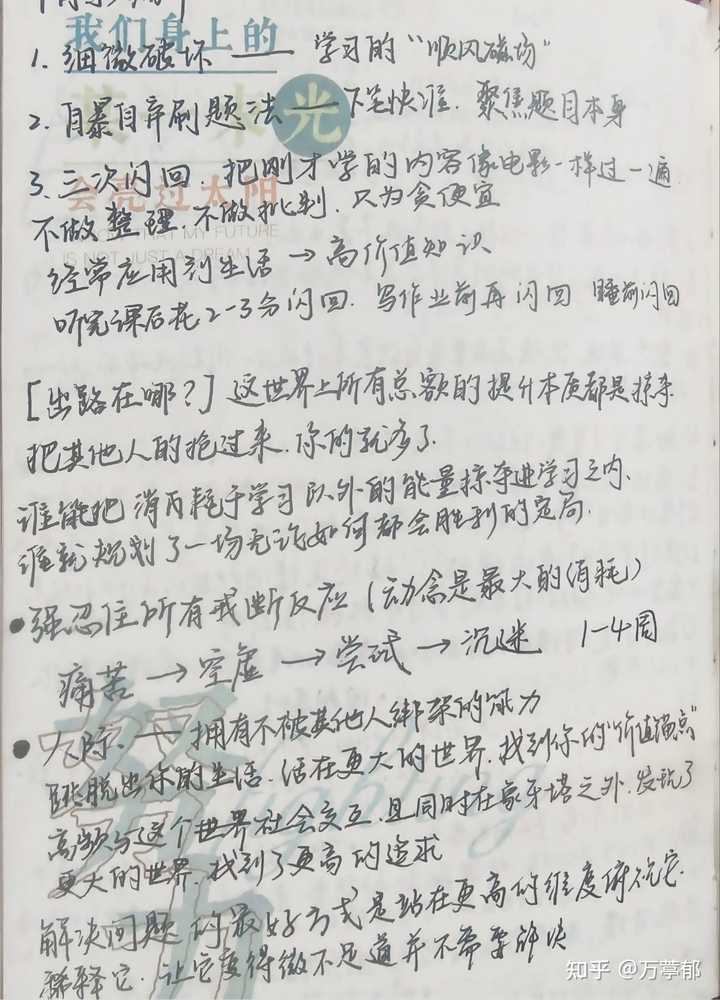 我们身上的
1. 细微破坏 —— 学习的“顺风磁场”
2. 自暴自弃刷题法 —— 下笔快准. 聚焦题目本身
光
3. 三次闪回. 把刚才学的内容像电影一样过一遍
会亮过太阳
不做整理. 不做批判. 只为贪便宜
THAT MY FUTURE
IS NOT JUST A DREAM
经常应用到生活 → 高价值知识
听完课后花2-3分闪回. 写作业前再闪回 睡前闪回
[出路在哪?] 这世界上所有总额的提升本质都是掠夺
把其他人的抢过来. 你的就多了.
谁能把消耗于学习以外的能量掠夺进学习之内.
谁就规划了一场无论如何都会胜利的定局.
• 强忍住所有戒断反应 (动念是最大的消耗)
痛苦 → 空虚 → 尝试 → 沉迷 1-4周
• 人际. — 拥有不被其他人绑架的能力
跳脱出你的生活. 活在更大的世界. 找到你的“价值锚点”
高频与这个世界社会交互. 且同时在象牙塔之外. 发现了
更大的世界. 找到了更高的追求
解决问题的最好方式是站在更高的维度俯视它.
稀释它. 让它变得微不足道并不需要解决
fighting
知乎 @万葶郁